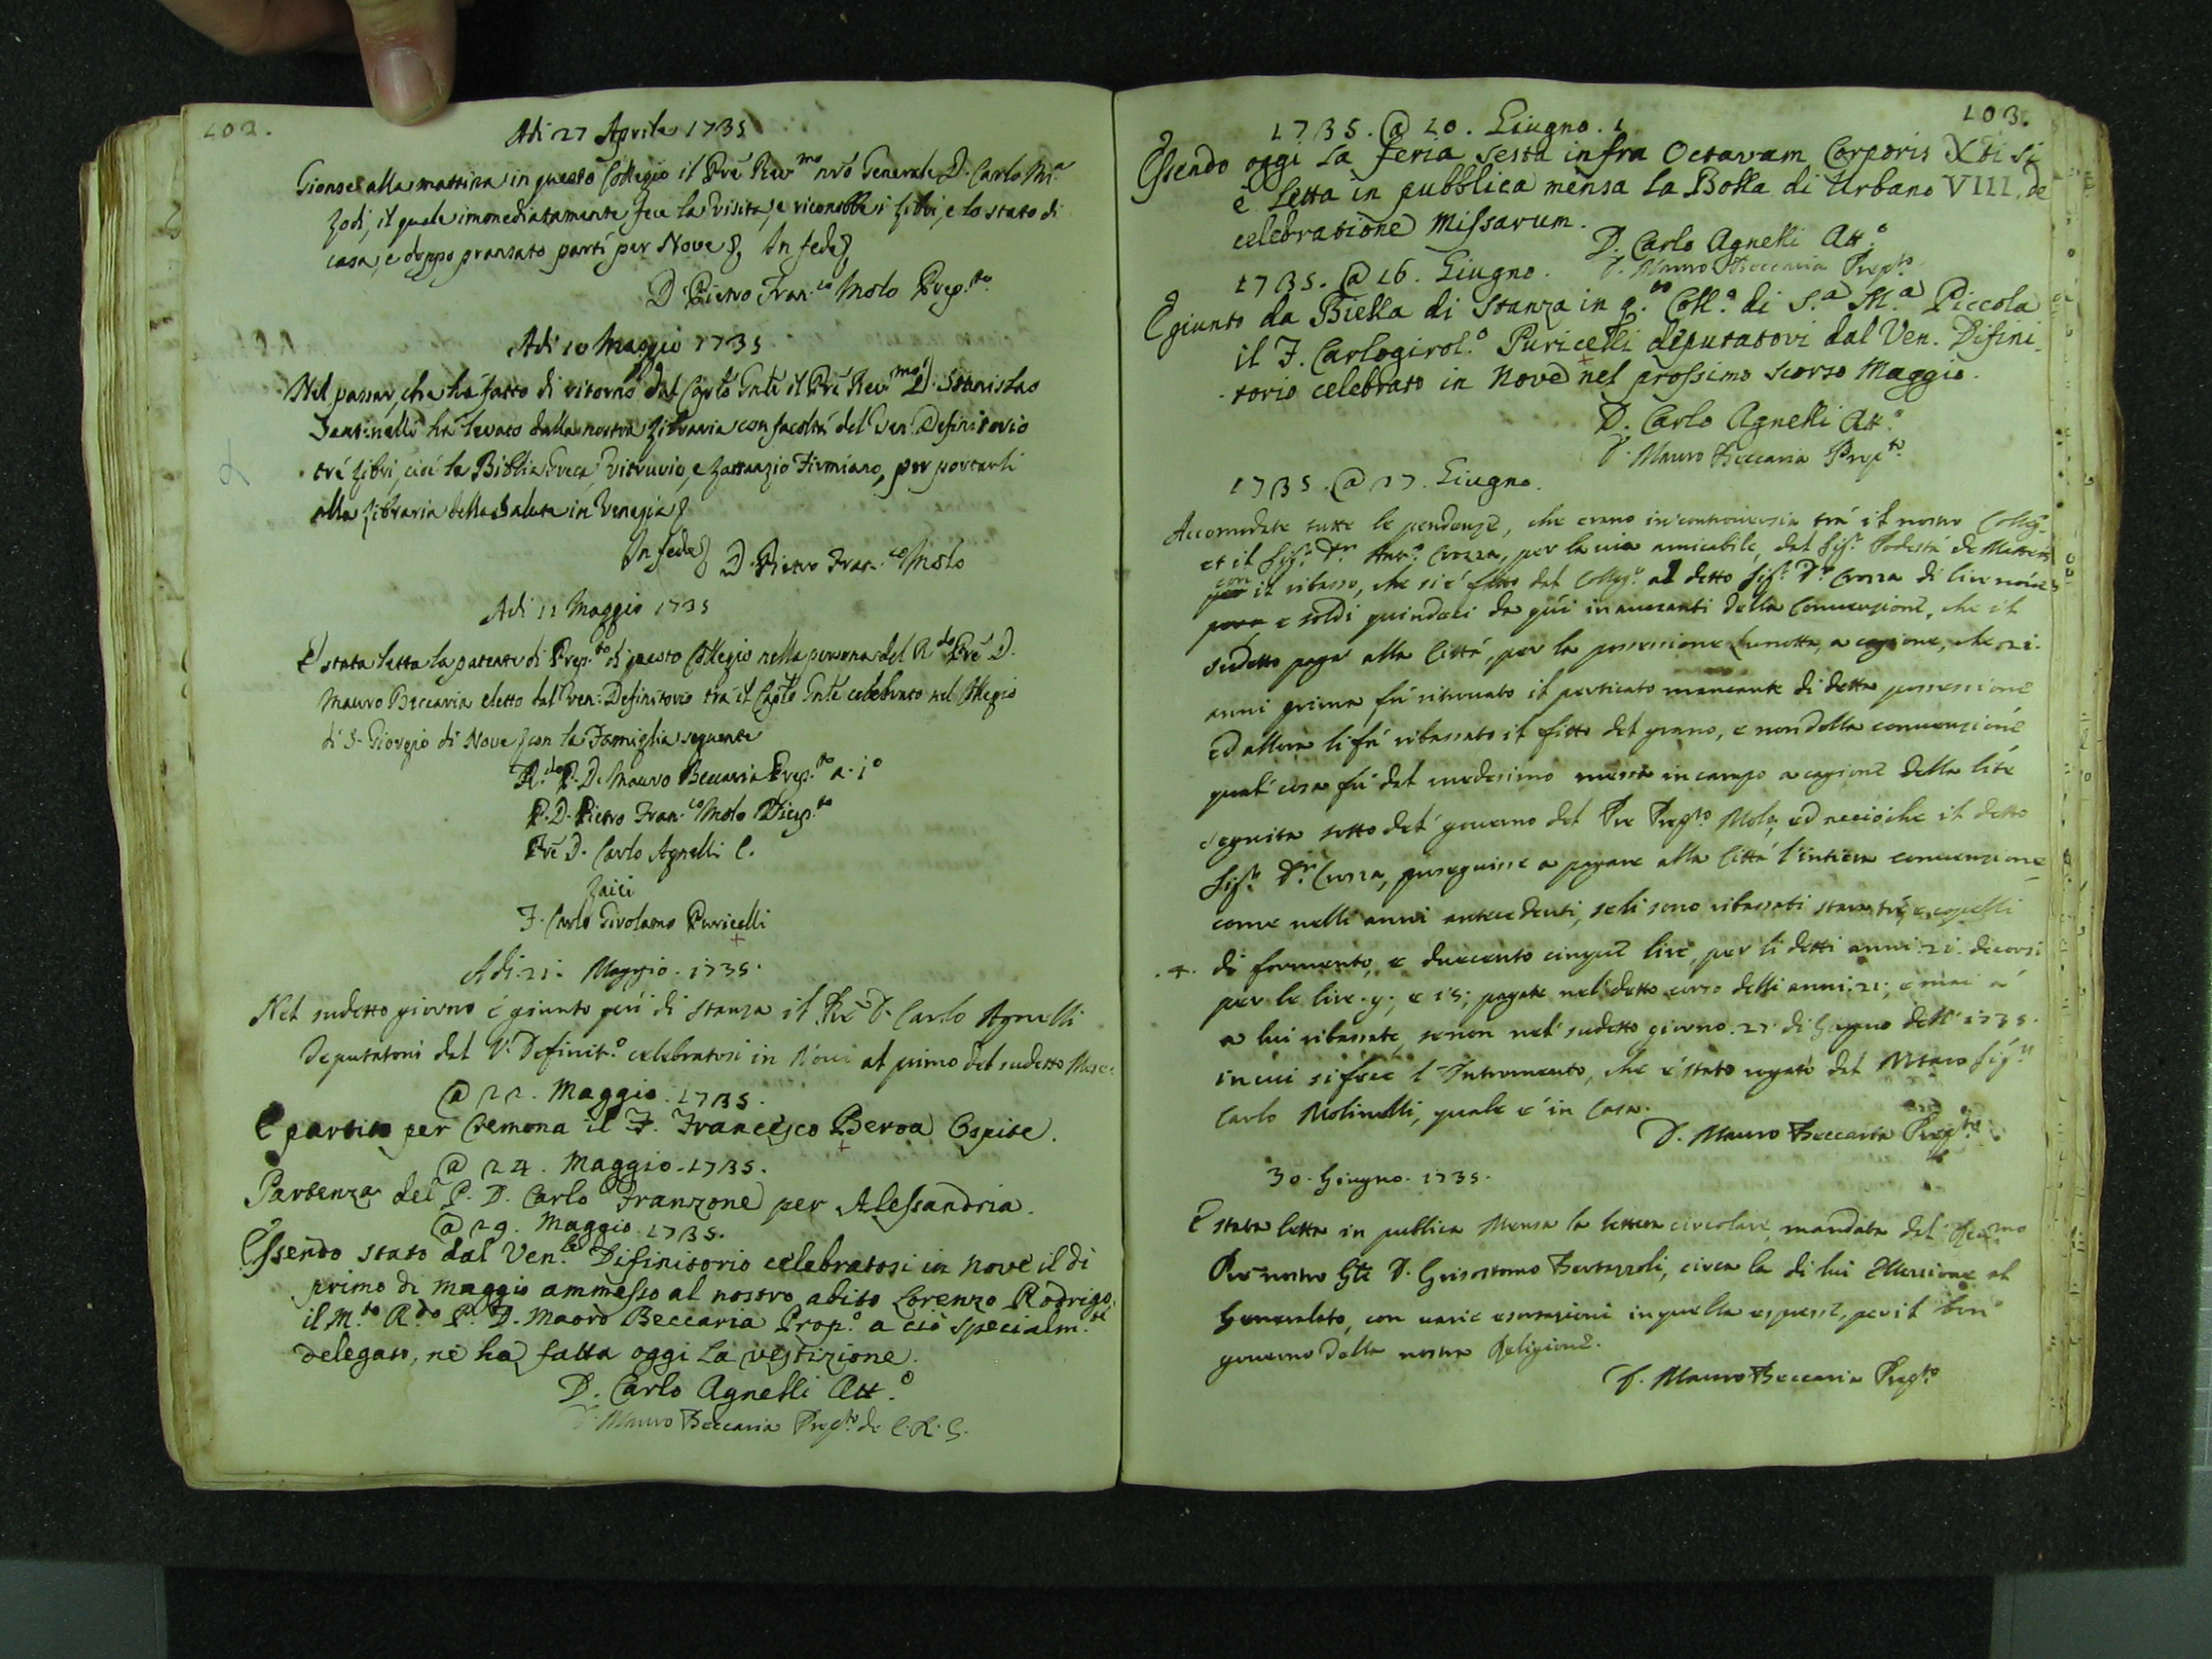 102.
Adi 27 Aprile 1735
Gionse alla mattina in questo Collegio il Prê Revmo nrô Generale D. Carlo Mr.a
Lodi, il quale immediatamente fece la visita, e riconobbe i libri, e lo stato di
casa, e doppo pransato partì per Nove In fede
D. Pietro Fran.co Molo Prep.to
Adi 10 Maggio 1735
Nel passar, che hà fatto di ritorno dal Caplo Gnle il Prê Revmo D. Stanislao
Santinelli hà levato dalla nostra libraria con facoltà del Ven: Definitorio
tré libri, cioè la Biblia Greca, Vitruvio, e Lattanzio Firmiano, per portarli
alla libraria della Salute in Venezia
In fede D. Pietro Fran.co Molo
Adi 12 Maggio 1735
È stata letta la patente di Prep.to di questo Collegio nella persona del R.do Prê D.
Mauro Beccaria eletto dal Ven: Definitorio trà il Caplo Gnle celebrato nel Collegio
di S. Giorgio di Nove con la Famiglia seguente
R.do P. D. Mauro Beccaria Prep.to a. i.o
P. D. Pietro Fran.co Molo Vicep.to
Prê D. Carlo Agnelli C.
Laici
F. Carlo Girolamo Puricelli
Adi. 21. Maggio. 1735.
Nel sudetto giorno è giunto quì di stanza il Prê D. Carlo Agnelli
Deputatoni dal V. Definit.o celebratosi in Nove al primo del sudetto Mese.
@ 22. Maggio. 1735.
È partito per Cremona il F. Francesco Beroa Ospite.
@ 24. Maggio. 1735.
Partenza del P. D. Carlo Franzone per Alessandria.
@ 29. Maggio. 1735.
Essendo stato dal Ven.le Difinitorio celebratosi in Nove il dì
primo di Maggio ammesso al nostro abito Lorenzo Rodrigo,
il M.to R.do P. D. Maoro Beccaria Prop.o a ciò specialm.te
delegato, ne ha fatta oggi la vestizione.
D. Carlo Agnelli Att.o
D. Mauro Beccaria Prep.to de C. R. S.
103.
1735. @ 10. Giugno.
Essendo oggi la feria sesta infra Octavam Corporis Xti si
è letta in pubblica mensa la Bolla di Urbano VIII. de
celebratione Missarum.
D. Carlo Agnelli Att.o
D. Mauro Beccaria Prep.to
1735. @ 16. Giugno.
È giunto da Biella di stanza in q.to Coll.o di S.a M.a Piccola
il F. Carlogirol.o Puricelli deputatovi dal Ven. Difini-
torio celebrato in Nove nel prossimo scorso Maggio.
D. Carlo Agnelli Att.o
D. Mauro Beccaria Prep.to
1735. @ 27. Giugno.
Accomodate tutte le pendenze, che erano in controversia trà il nostro Colleg.o
et il Sig.r D.r Ant.o Crozza, per la via amicabile, dal Sig.r Podestà de
con
per il ribasso, che si è fatto dal Colleg.o al detto Sig.r D.r Crozza di lire nove
e soldi quindeci da quì in avvanti della Convenzione, che il
sudetto paga alla Città, per la possessione Lunotta, a cagione, che 21.
anni prima fù ritrovato il perticato mancante di detta possessione
ed allora li fù ribassato il fitto del grano, e non della convenzione
qual cosa fù dal medesimo messa in campo a cagione della lite
seguita sotto del governo del Prê Prep.to Molo, ed accioche il detto
Sig.r D.r Crozza, proseguisse a pagare alla Città l'intiera convenzione
come nelli anni antecedenti, se li sono ribassati stara trè, e copelli
.4. di formento, e duecento cinque lire, per li detti anni. 21. decorsi
per le lire. 9; e 15; pagate nel detto corso delli anni. 21; e mai
a lui ribassate, se non nel sudetto giorno. 27. di Giugno dell' 1735.
in cui si fece l'Intromento, che è stato rogato dal Notaro Sig.r
Carlo Molinelli, quale è in Casa.
D. Mauro Beccaria Prep.to
30. Giugno. 1735.
È stata letta in publica Mensa la lettera circolare, mandata dal Re.mo
Prê nostro Gle D. Grisostomo Bertazzoli, circa la di lui Ellezione al
Generalato, con varie esortazioni in quella espresse, per il bon
governo della nostra Religione.
D. Mauro Beccaria Prep.to